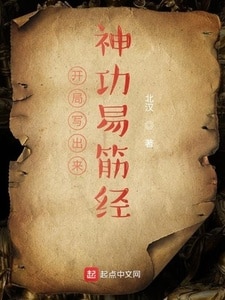 开局写出来
神功易筋经
北汉 著
起 起点中文网